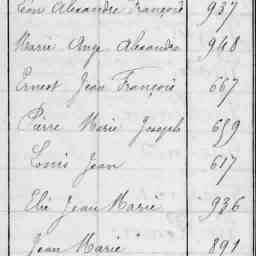 Léon Alexandre François 937
Marie Ange Alexandre 948
Ernest Jean François 667
Pierre Marie Joseph 659
Louis Jean 617
Elie Jean Marie 936
Jean Marie 891